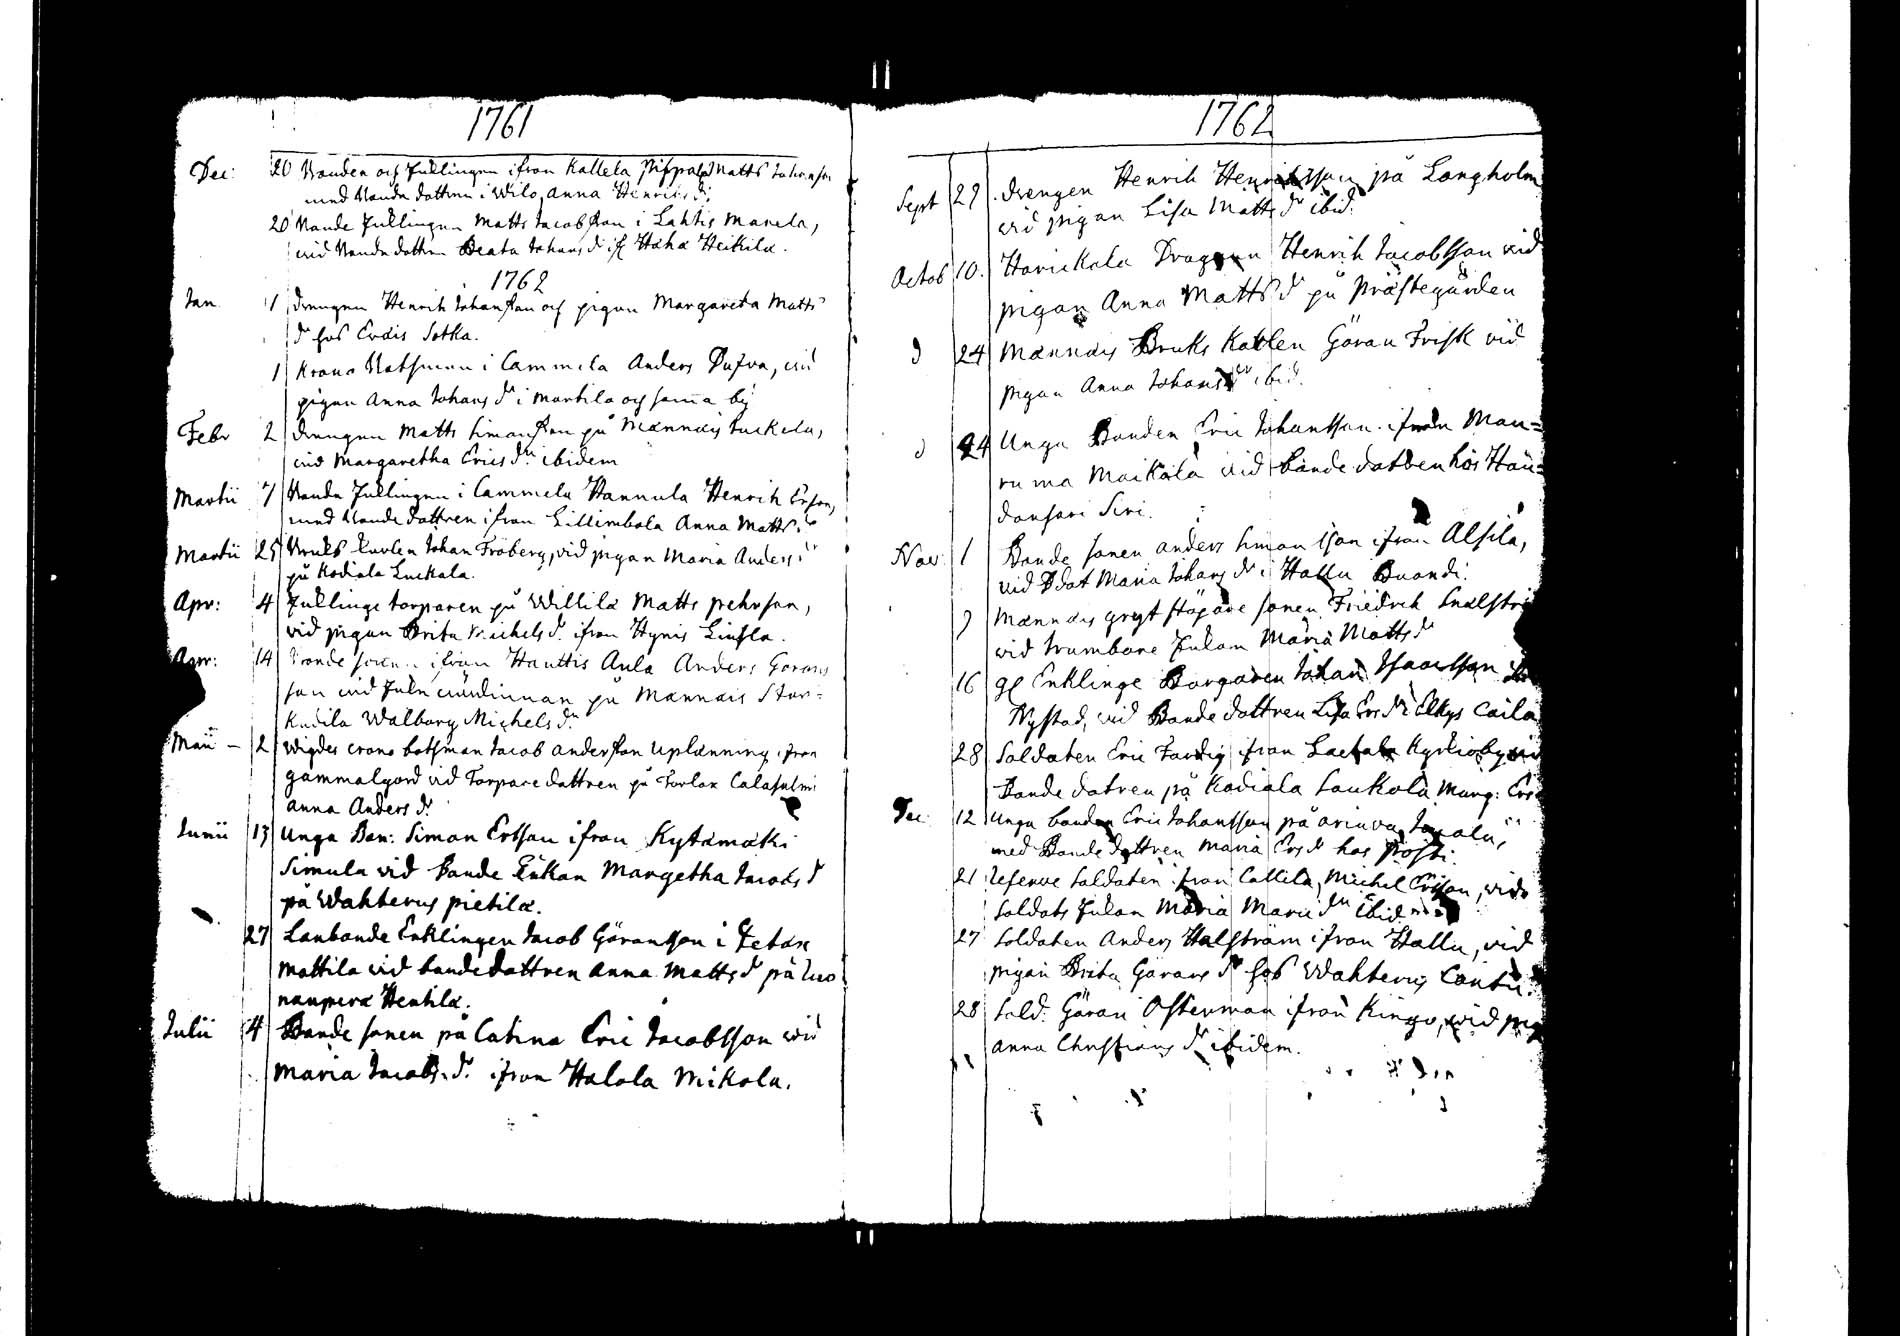 1761
Dec: 20 Bonden och Jnllingen ifron Kallela Matts Johanson
med Bonde dottren i Wilo, Anna Henrics dr.
20 Bonde Jnllingen Matts Jacobsson i Lahtis Manela,
vid Bonde dottren Beata Johans dr if Haha Heikila.
1762
Jan 1 drengen Henrik Johansson och pigan Margareta Matts
dr hos Erdis Sotka.
1 Krono Botsman i Cammela Anders Dufva, vid
pigan Anna Johans dr i Martila och sama by
Febr 2 drengen Matts Simonsson på Mannäis Luckela,
vid Margaretha Erics dr ibidem
Martii 7 Bonde Jnllingen i Cammela Hannula Henrik Ersson,
med Bonde dottren ifron Lillimbola Anna Matts dr
Martii 25 Bruks Karlen Johan Fröberg, vid pigan Maria Anders dr
på Kodiala Luckala.
Apr: 4 Jnllinge torparen på Willila Matts pehrson,
vid pigan Brita Michels dr ifron Hynis Linsla.
Apr: 14 Bonde sonen ifron Hauttis Aula Anders Görans
son vid Jnln på Mannäis Stor-
Kudila Walborg Michels dr
Maii - 2 Wigdes crono botsman Jacob Andersson Uplänning ifron
gammalgord vid Torpare dottren på Torlax Calasulmi
Anna Anders dr
Junii 13 Unga Bon: Simon Ersson ifron Kytämäki
Simula vid Bonde Enkan Margetha Jacobs d
på Wahterus pietila.
27 Lanbonde Enklingen Jacob Göransson i Tetax
Mattila vid bonde dottren Anna Matts dr på Luo
nanpera Hentila.
Julii 4 Bonde sonen på Catina Eric Jacobsson vid
Maria Jacobs dr. ifron Halola Mikola.
1762
Sept 29 drengen Henrik Henricsson på Långholm
vid pigan Lisa Matts dr ibid.
Octob 10. Havickala Dragoun Henrik Jacobsson vid
pigan Anna Matts dr på Prästegården
d 24 Mannäis Bruks Karlen Göran Frisk vid
pigan Anna Johans dr ibid.
d 24 Unga Bonden Eric Johansson ifrån Mau=
ruma Maikala vid bonde dottren hos Hau=
donsari Siri.
Nov: 1 Bonde sonen Anders Simonsson ifrån Alsila,
vid B dot Maria Johans dr i Hallu Buandi.
9 Mannäis grytstöpare sonen Friedrick
vid trumbare Jnkan Maria Matts dr
16 gl Enklinge Borgaren Johan Isaacsson
Nystad, vid Bonde dottren Lisa Ers dr i Elkys Caila
28 Soldaten Eric Fardig ifron Laitala Kyrkioby
Bonde dotren på Kodiala Laukola Marg: Ers
Dec: 12 Unga bonden Eric Johansson på
med Bonde dottren Maria Ers dr hos Posti.
21 Reserve Soldaten ifron Callela, Michel Ersson, vid
Soldats Jnkan Maria dr ibid.
27 Soldaten Anders Halström ifron Hallu, vid
pigan Brita Görans dr hos Wahterus
28 Sold: Göran Osterman ifron Kingo, vid pig
Anna Christians dr ibidem.